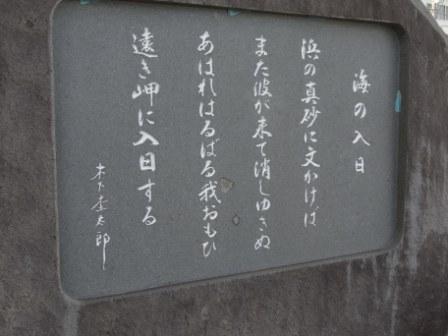 海の入日
浜の真砂に文かけば
また波が来て消しゆきぬ
あはれはるばる我おもひ
遠き岬に入日する
木下杢太郎